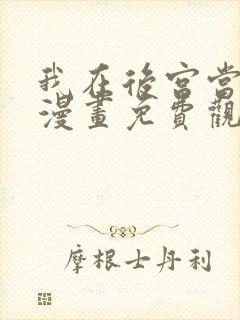 我在後宮當
漫畫免費觀
摩根士丹利